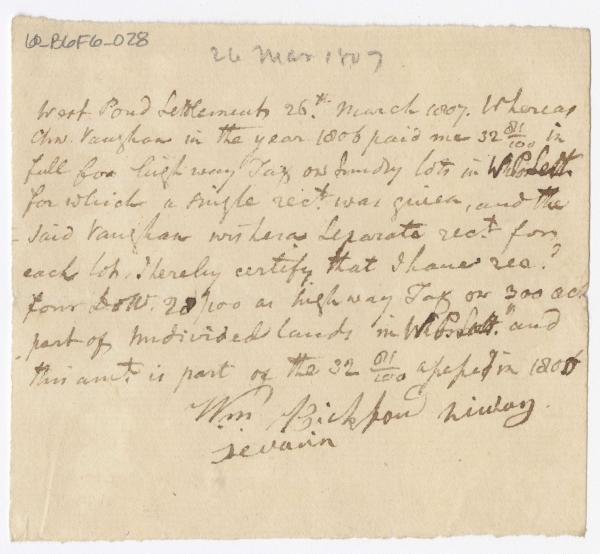 62-B6F6-028
26 Mar 1807
West Pond Settlement 26.th March 1807. Whereas
Chs. Vaughan in the year 1806 paid me 32 81/100 in
full for high way Tax on Sundry lots in W.P. Sett
for which a single rect. was given, and the
said Vaughan wishes a separate rect. for
each lot. I hereby certify that I have rec.d
four Dolls. 20/100 as high way Tax on 300 acs
part of undivided lands in W.P. Sett. and
this amt. is part of the 32 81/100 assessed in 1806
Wm Bickford hiway